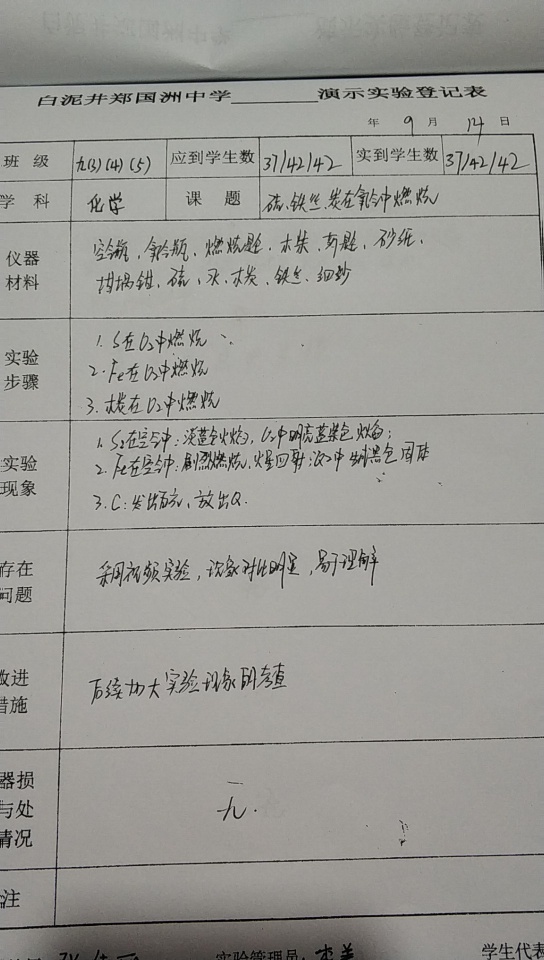 白泥井郑国洲中学______演示实验登记表
年 9 月 14 日
班 级 九(3)(4)(5) 应到学生数 37/42/42 实到学生数 37/42/42
学 科 化学 课 题 硫、铁丝、炭在氧气中燃烧
仪器 空瓶、氧气瓶、燃烧匙、木条、药匙、砂纸、
材料 坩埚钳、硫、火、木炭、铁丝、细砂
1. S在O2中燃烧
实验 2. Fe在O2中燃烧
步骤 3. 木炭在O2中燃烧
1. 在空气中:淡蓝色火焰,O2中明亮蓝紫色火焰;
实验 2. Fe在空气中:剧烈燃烧,火星四射;黑色固体
现象 3. C:发出白光,放出Q.
存在 采用视频实验,现象对比明显,易于理解
问题
改进 后续加大实验现象的考查
措施
器损
与处 无.
情况
注
实验管理员: 学生代表